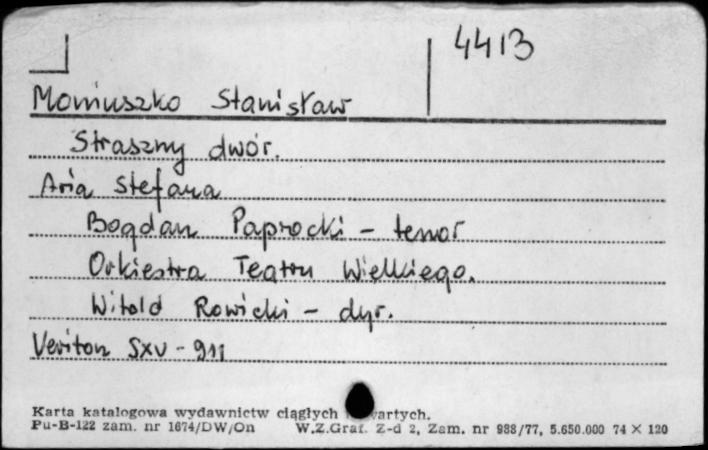 4413
Moniuszko Stanisław
Straszny dwór.
Aria Stefana
Bogdan Paprocki - tenor
Orkiestra Teatru Wielkiego.
Witold Rowicki - dyr.
Veriton SXV - 911
Karta katalogowa wydawnictw ciągłych i zwartych.
Pu-B-122 zam. nr 1674/DW/On W.Z.Graf. Z-d 2, Zam. nr 988/77, 5.650.000 74 × 120